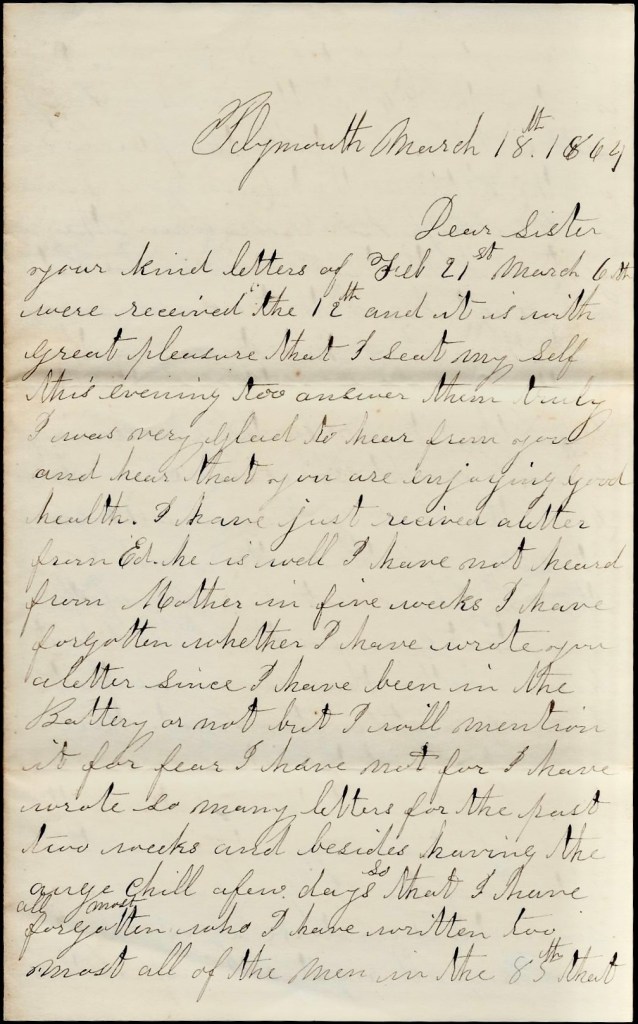 Plymouth March 18th. 1864
Dear Sister
your kind letters of Feb 21st March 6th
were received the 12th and it is with
great pleasure that I seat my self
this evening too answer them truly
I was very glad to hear from you
and hear that you are enjoying good
health. I have just recived aletter
from Ed. he is well I have not heard
from Mother in five weeks I have
forgotten whether I have wrote you
aletter since I have been in the
Battery or not but I will mention
it for fear I have not for I have
wrote so many letters for the past
two weeks and besides having the
auge chill afew days so that I have
all most
forgotten who I have written too
most all of the men in the 85th that